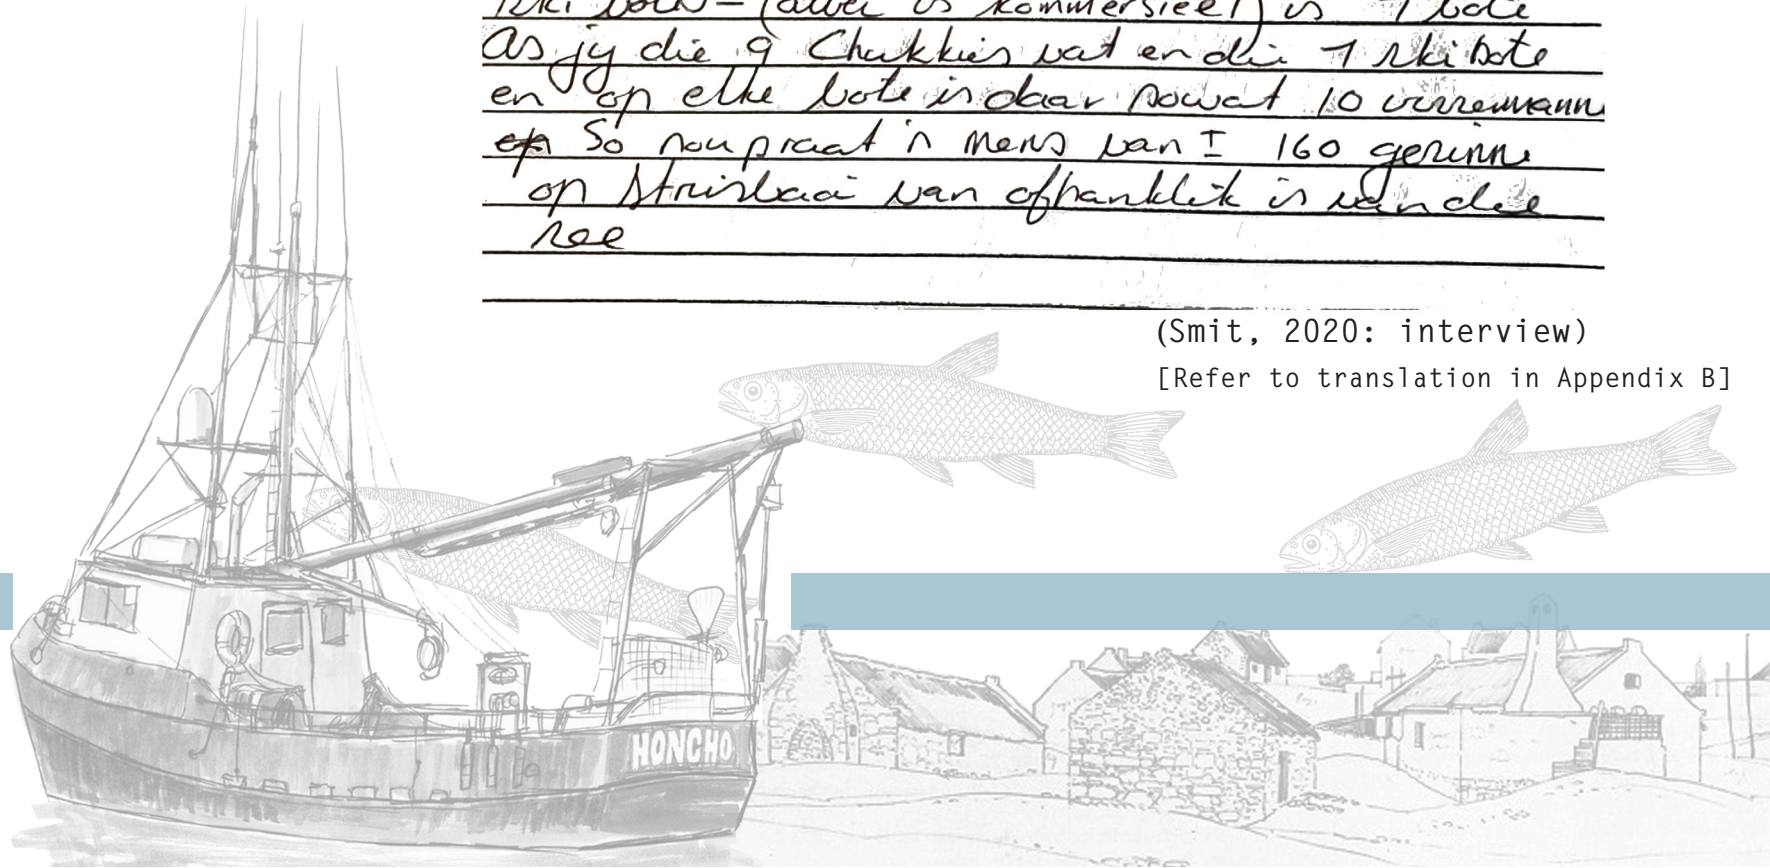 ski bote - (almal is kommersieel) is 7 bote
As jy die 9 Chukkies vat en die 7 ski bote
en op elke bote is daar sowat 10 vissermann
So nou praat 'n mens van ± 160 gesinne
op Struisbaai van afhanklik is van die
see
(Smit, 2020: interview)
[Refer to translation in Appendix B]
HONCHO